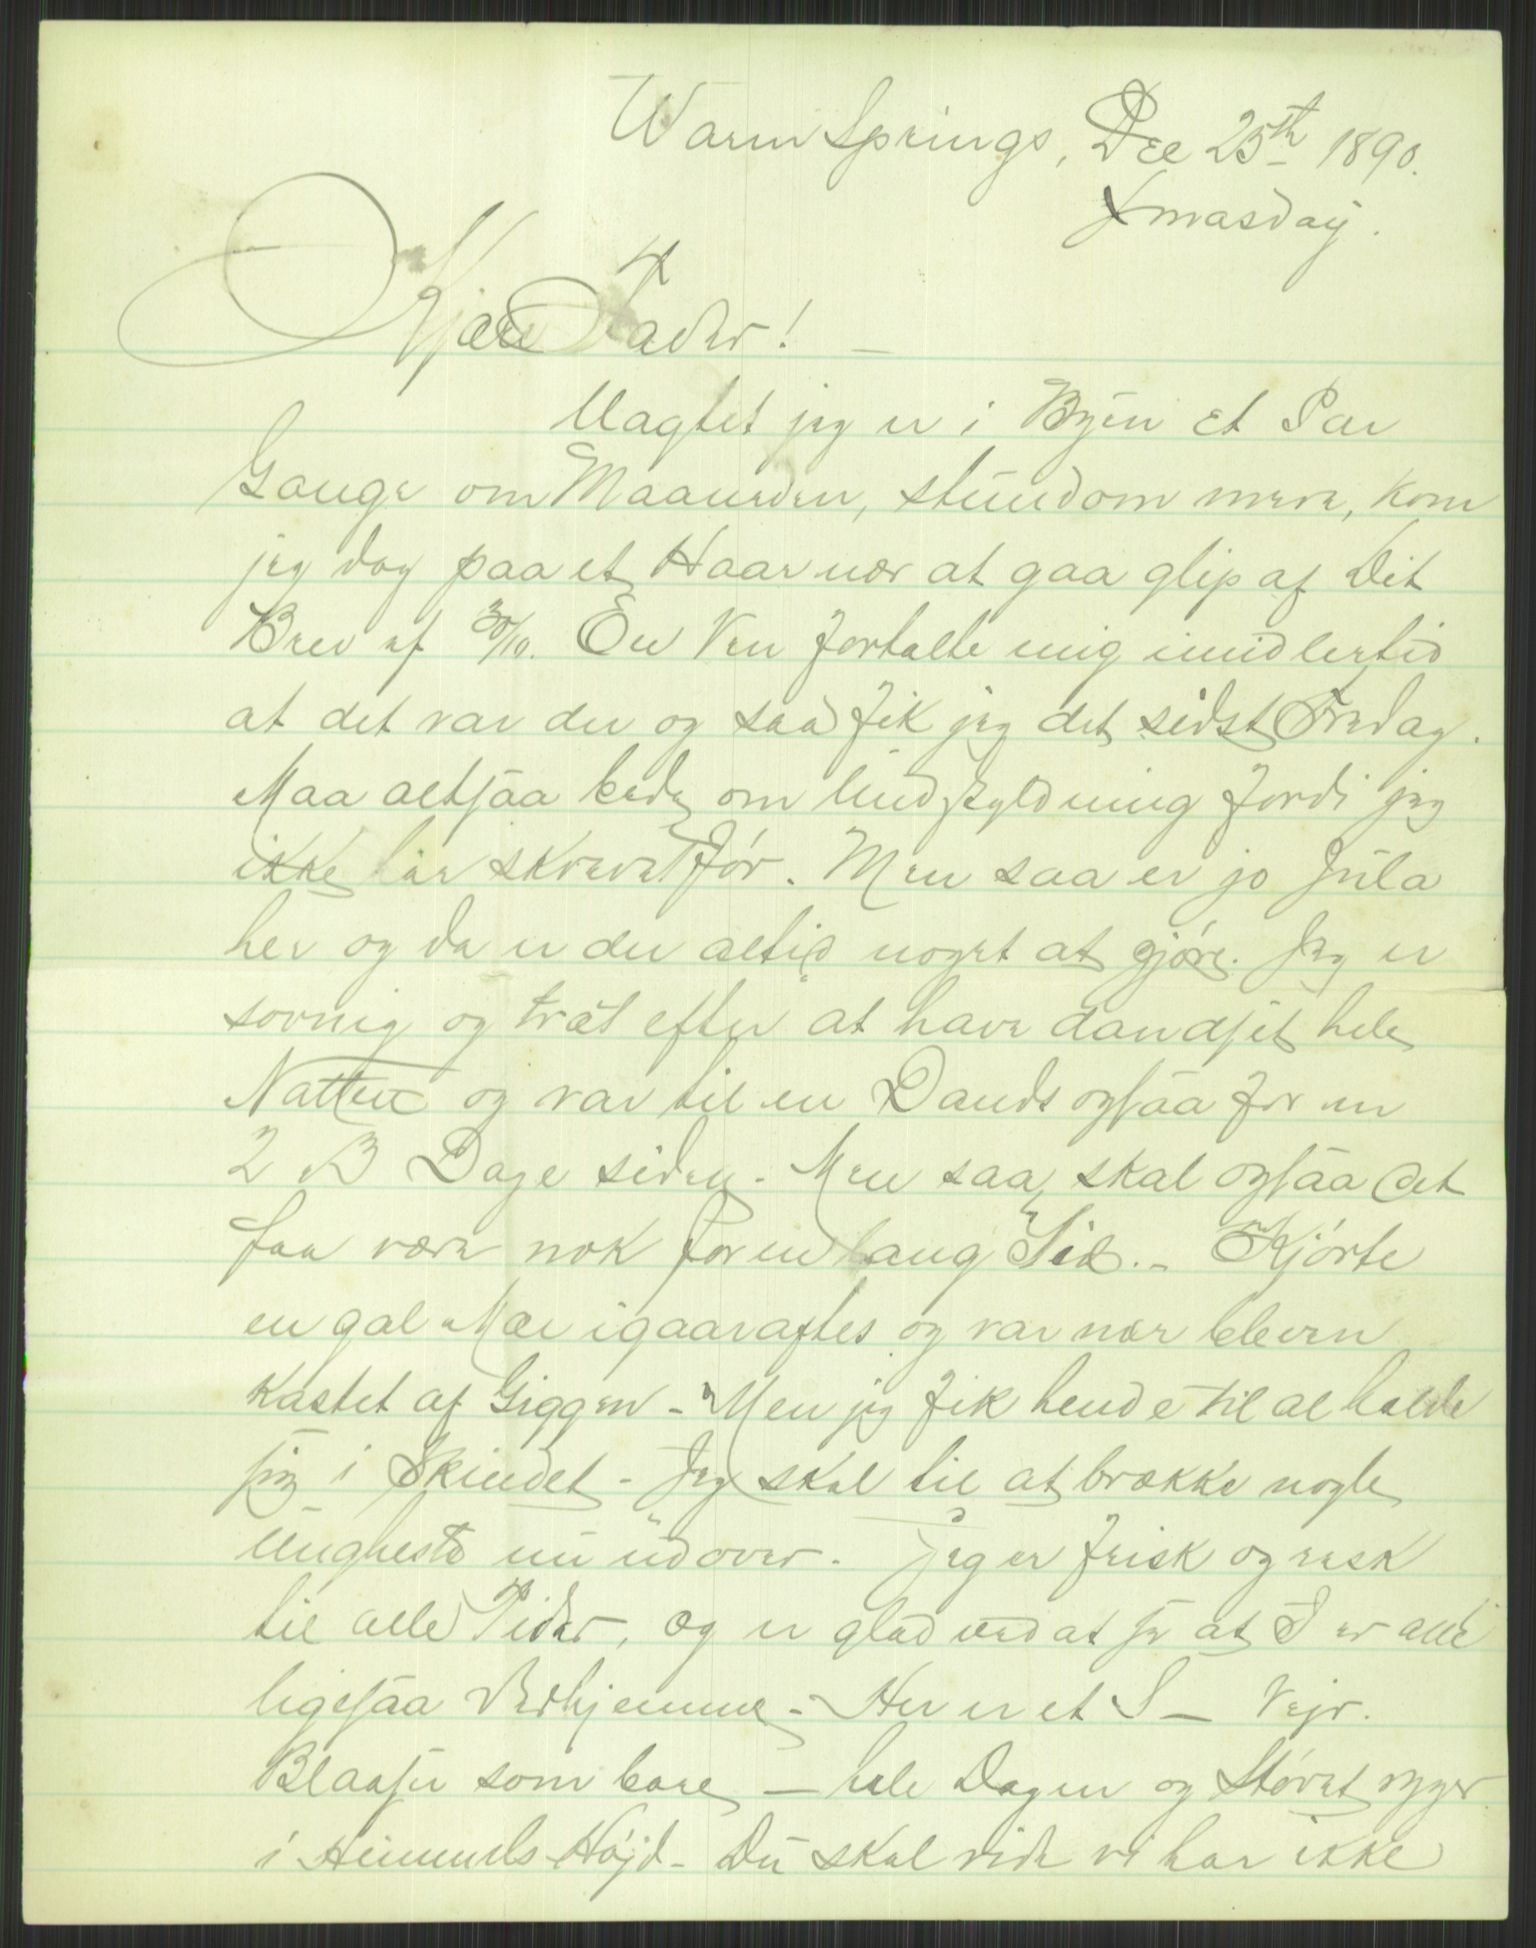 Warm Springs, Dec 25th 1890.
Xmasday.
Kjære Fader! –
Uagtet jeg er i Byen et Par
Gange om Maaneden, stundom mere, kom
jeg dog paa et Haar nær at gaa glip af Dit
Brev af 30/10. En Ven fortalte mig imidlertid
at det var der og saa fik jeg det sidst Fredag.
Maa altsaa bede om Undskyldning fordi jeg
ikke har skrevet før. Men saa er jo Jula
her og da er der altid noget at gjøre. Jeg er
sovnig og træt efter at have dandset hele
Natten og var til en Dands ogsaa for en
2 3 Dage siden. Men saa skal ogsaa det
faa være nok for en lang Tid. – Kjørte
en gal Mær igaaraftes og var nær bleven
kastet af Giggen – Men jeg fik hende til at holde
sig i Skindet – Jeg skal til at brække nogle
Ungheste nu udover. Jeg er frisk og rask
til alle Tider, og er glad ved at se at I er alle
ligesaa derhjemme – Her er et S – Vejr.
Blaaser som bare – hele Dagen og Støvet ryger
i Himmels Højd – Du skal vide vi har ikke